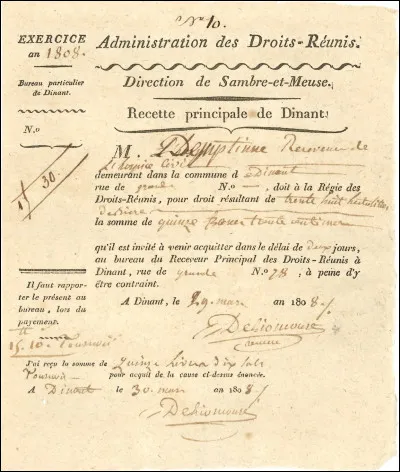 No 10.
EXERCICE
an 1808.
Administration des Droits-Réunis.
Bureau particulier
de Dinant.
Direction de Sambre-et-Meuse.
Recette principale de Dinant.
N.o
15 30.
M. Receveur de
demeurant dans la commune d Dinant
rue de grande N.o — , doit à la Régie des
Droits-Réunis, pour droit résultant de trente huit hectolitres
de bierre
la somme de quinze francs trente centimes
qu'il est invité à venir acquitter dans le délai de deux jours,
au bureau du Receveur Principal des Droits-Réunis à
Dinant, rue de grande N.o 78, à peine d'y
être contraint.
Il faut rappor-
ter le présent au
bureau, lors du
payement.
A Dinant, le 29 mars 1808.
15. 10.
J'ai reçu la somme de quinze livres dix sols
pour acquit de la cause ci-dessus énoncée.
A Dinant le 30 mars 1808.